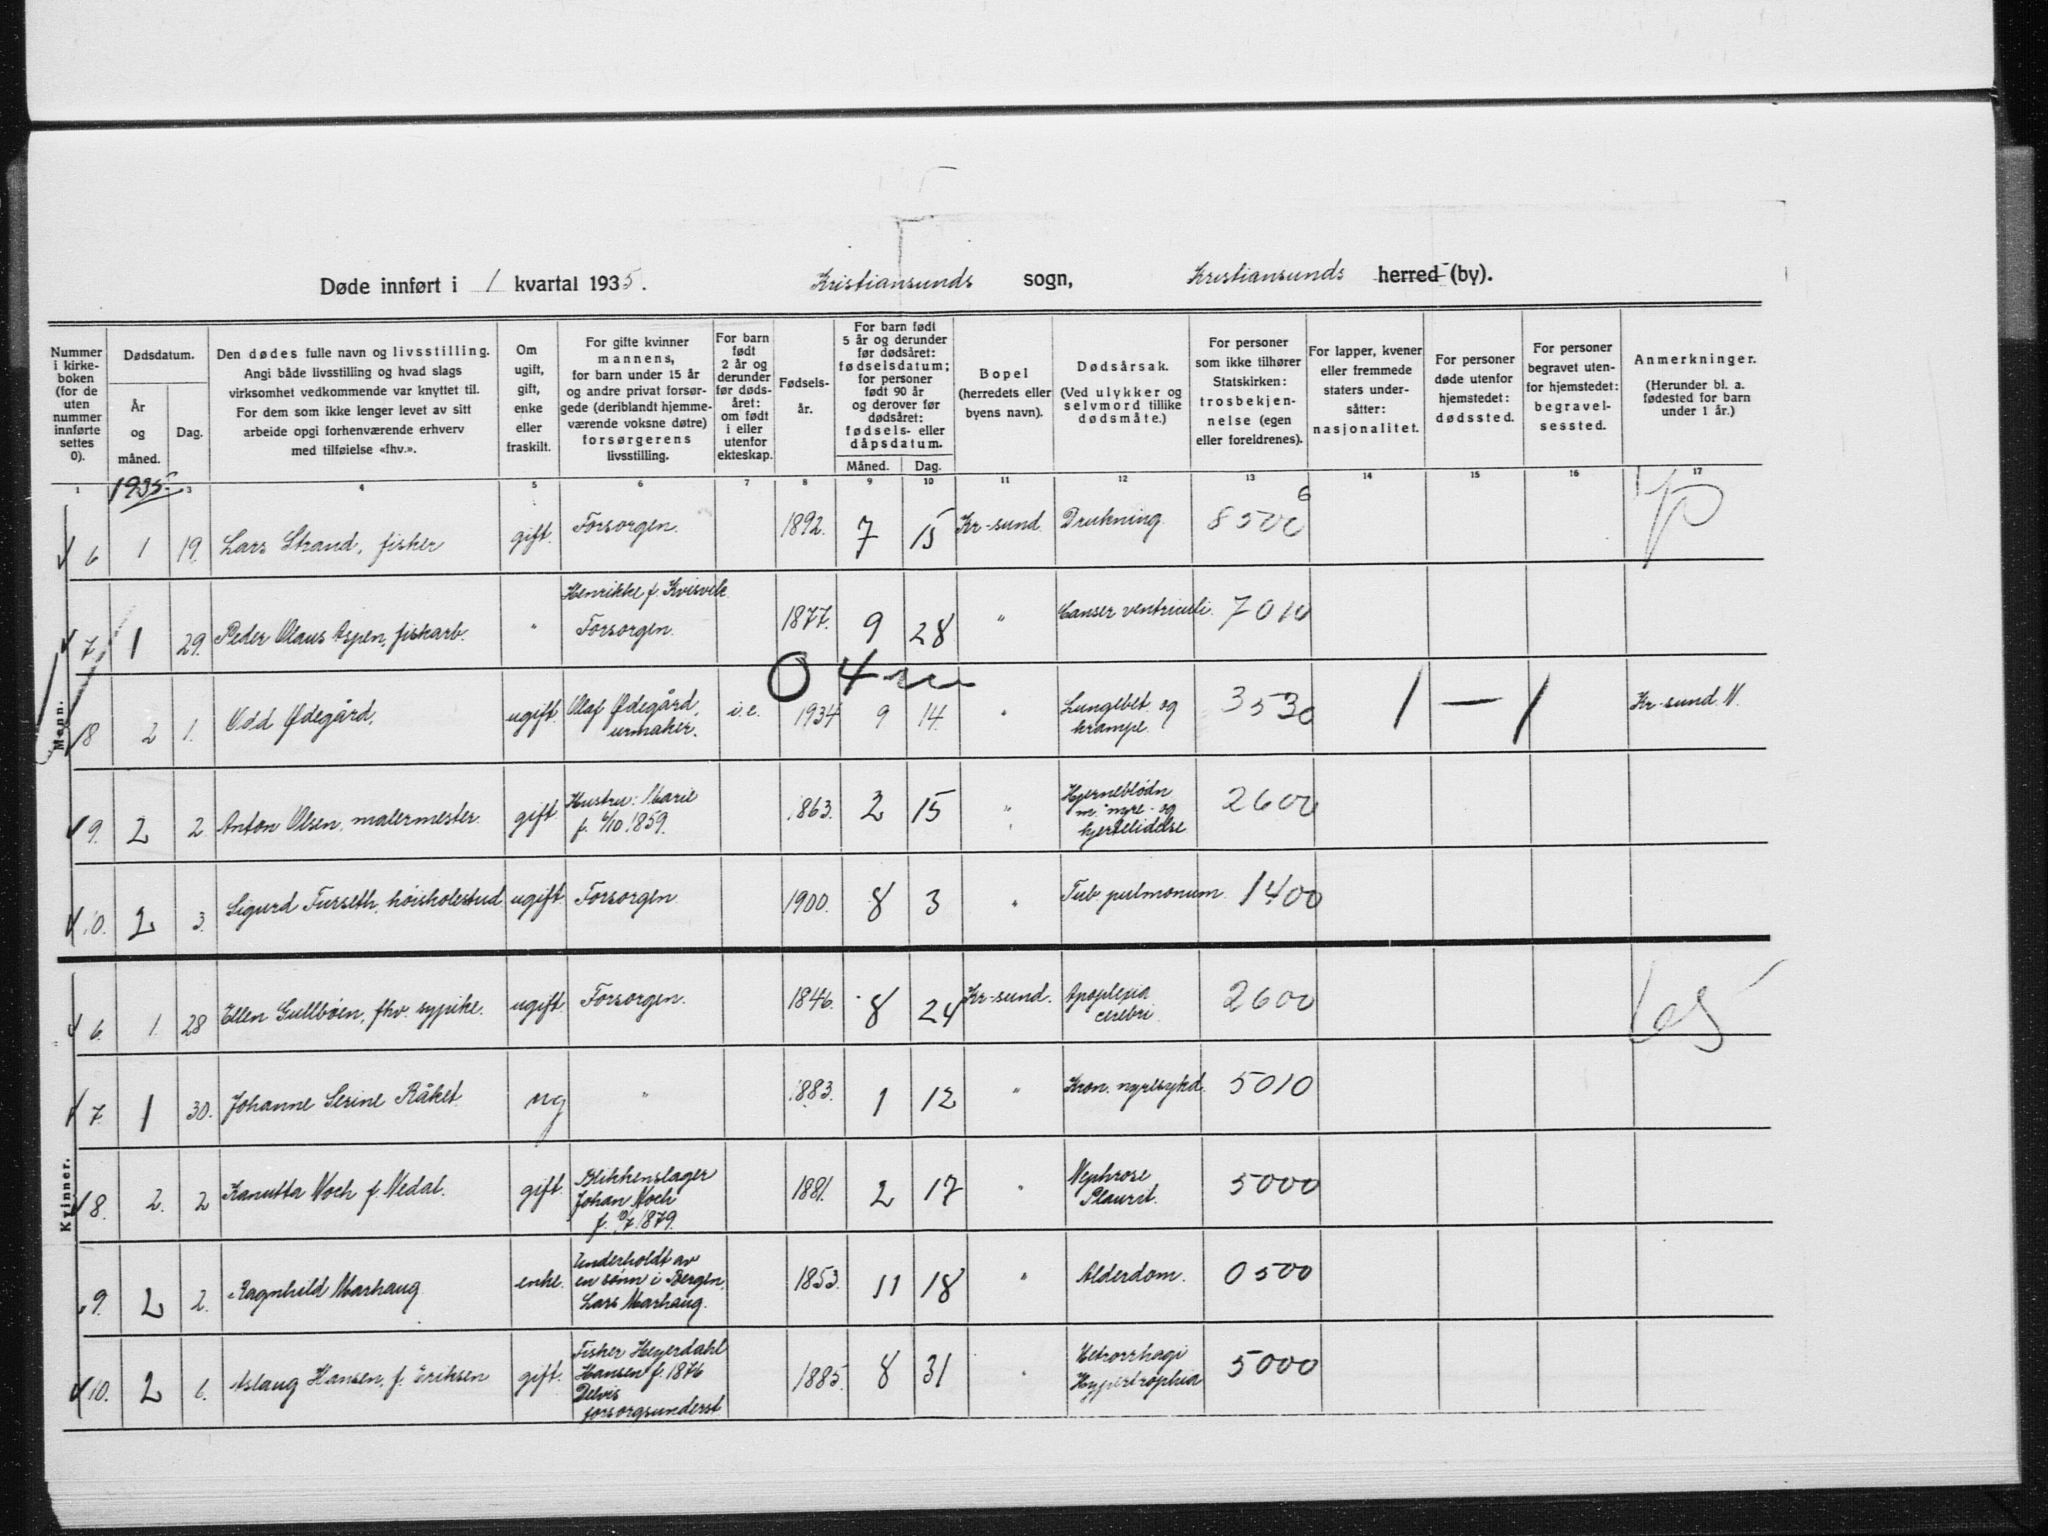 Døde innført i 1 kvartal 1935. Kristiansunds sogn, Kristiansunds herred (by).
Nummer i kirke-boken (for de uten nummer innførte settes 0).
Dødsdatum.
År og måned.
Dag.
Den dødes fulle navn og livsstilling.
Angi både livsstilling og hvad slags
virksomhet vedkommende var knyttet til.
For dem som ikke lenger levet av sitt
arbeide opgi forhenværende erhverv
med tilføielse «fhv.».
Om ugift, gift, enke eller fraskilt.
For gifte kvinner
mannens,
for barn under 15 år
og andre privat forsør-
gede (deriblandt hjemme-
værende voksne døtre)
forsørgerens
livsstilling.
For barn født 2 år og derunder før døds-året: om født i eller utenfor ekteskap.
Fødsels-år.
For barn født
5 år og derunder
før dødsåret:
fødselsdatum;
for personer
født 90 år
og derover før
dødsåret:
fødsels- eller
dåpsdatum.
Måned. Dag.
Bopel
(herredets eller
byens navn).
Dødsårsak.
(Ved ulykker og
selvmord tillike
dødsmåte.)
For personer
som ikke tilhører
Statskirken:
trosbekjen-
nelse (egen
eller foreldrenes).
For lapper, kvener
eller fremmede
staters under-
såtter:
nasjonalitet.
For personer
døde utenfor
hjemstedet:
dødssted.
For personer
begravet uten-
for hjemstedet:
begravel-
sessted.
Anmerkninger.
(Herunder bl. a.
fødested for barn
under 1 år.)
1 3 4 5 6 7 8 9 10 11 12 13 14 15 16 17
1935
Mann.
6 1 19. Lars Strand, fisker gift. Forsorgen. 1892. 7 15 Kr-sund. Drukning. 8500 6
7. 1 29. Peder Olaus Aspen, fiskarb. " Henrikke f. Kvisvik Forsorgen. 1877. 9 28 " Canser ventriculi. 7010
0 4 m
8 2 1. Odd Ødegård. ugift. Olaf Ødegård, urmaker. i.e. 1934 9 14. " Lungebet. og krampe. 3530 1 — 1 Kr-sund N.
9. 2 2. Anton Olsen, malermester. gift Hustru: Marie f. 6/10.1859. 1863. 2 15 " Hjerneblødn m. nyre- og hjertelidelse 2600
10. 2 3. Sigurd Furseth, høiskolestud ugift. Forsorgen 1900. 8 3 " Tub. pulmonum. 1400
Kvinner.
6. 1. 28 Ellen Gullbøen, fhv. sypike. ugift. Forsorgen. 1846. 8 24 Kr-sund. Apoplexia cerebri. 2600
7. 1 30. Johanne Serine Råket. ug " 1883. 1 12 " Kron. nyresykd. 5010
8. 2. 2 Kanutta Noch f. Nedal. gift. Blikkenslager Johan Noch 1879. 1881. 2 17 " Nephrose Plaurit. 5000
9. 2 2. Ragnhild Marhaug enke. Underholdt av en sønn i Bergen, Lars Marhaug. 1853. 11 18 " Alderdom. 0500
10. 2 6. Aslaug Hansen, f. Eriksen gift. Fisker Heyerdahl Hansen f. 1876 Delvis forsorgsunderst 1885. 8 31 " Hypertrophia 5000